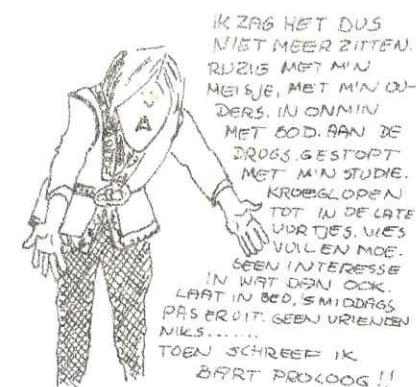 IK ZAG HET DUS
NIET MEER ZITTEN.
RUZIE MET M'N
MEISJE, MET M'N OU-
DERS. IN ONMIN
MET GOD. AAN DE
DRUGS. GESTOPT
MET M'N STUDIE.
KROEGLOPEN
TOT IN DE LATE
UURTJES. VIES
VUIL EN MOE.
GEEN INTERESSE
IN WAT DAN OOK.
LAAT IN BED, 'S MIDDAGS
PAS ERUIT. GEEN VRIENDEN
NIKS.......
TOEN SCHREEF IK
BART PROLOOG!!